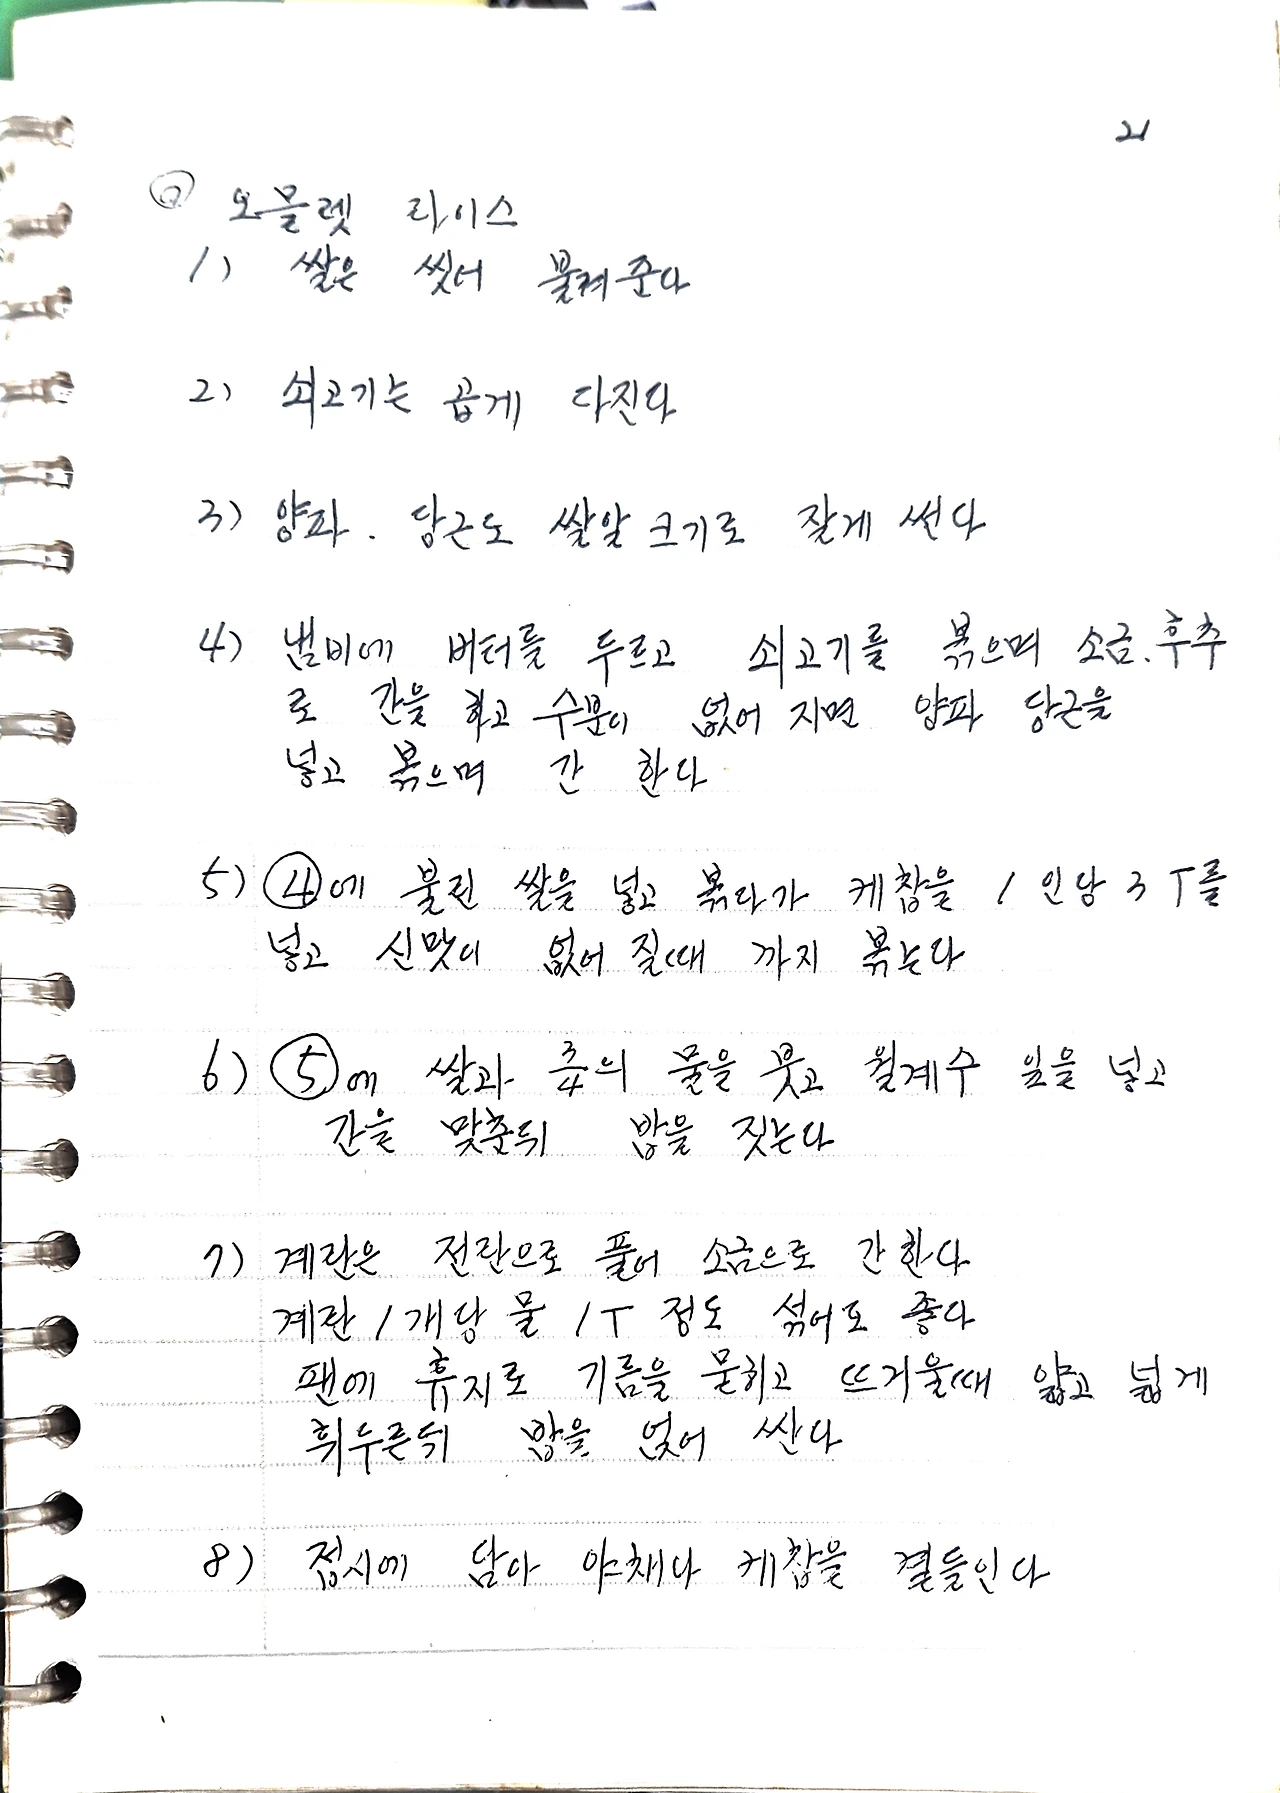 21
오믈렛 라이스
1) 쌀은 씻어 불려준다
2) 쇠고기는 곱게 다진다
3) 양파. 당근도 쌀알 크기로 잘게 썬다
4) 냄비에 버터를 두르고 쇠고기를 볶으며 소금.후추
로 간을 하고 수분이 없어 지면 양파 당근을
넣고 볶으며 간 한다
5) ④에 불린 쌀을 넣고 볶다가 케찹을 1인당 3T를
넣고 신맛이 없어 질때 까지 볶는다
6) ⑤에 쌀과 3/4의 물을 붓고 월계수 잎을 넣고
간을 맞춘뒤 밥을 짓는다
7) 계란은 전란으로 풀어 소금으로 간한다
계란 1개당 물 1T 정도 섞어도 좋다
팬에 휴지로 기름을 묻히고 뜨거울때 얇고 넓게
휘두른뒤 밥을 얹어 싼다
8) 접시에 담아 야채나 케찹을 곁들인다